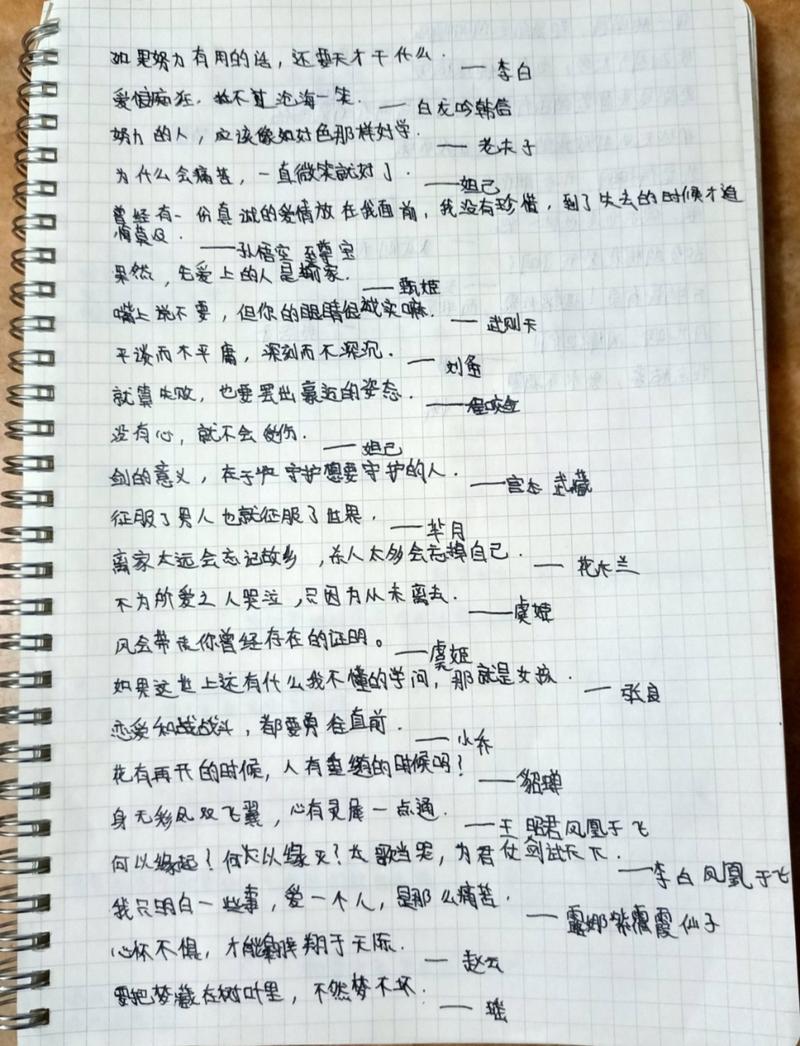 如果努力有用的话，还要天才干什么．——李白
爱恨痴狂，敌不过沧海一笑．——白龙吟韩信
努力的人，应该像好色那样好学．——老夫子
为什么会痛苦，一直微笑就好了．——妲己
曾经有一份真诚的爱情放在我面前，我没有珍惜，到了失去的时候才追
悔莫及．——孙悟空 至尊宝
果然，先爱上的人是输家．——甄姬
嘴上说不要，但你的眼睛很诚实嘛．——武则天
平淡而不平庸，深刻而不深沉．——刘
就算失败，也要摆出豪迈的姿态．——程咬金
没有心，就不会受伤．——妲己
剑的意义，在于守护想要守护的人．——宫本 武藏
征服了男人也就征服了世界．——芈月
离家太远会忘记故乡，杀人太多会忘掉自己．——花木兰
不为所爱之人哭泣，只因为从未离去．——虞姬
风会带走你曾经存在的证明。——虞姬
如果这世上还有什么我不懂的学问，那就是女孩．——张良
恋爱和战战斗，都要勇往直前．——小乔
花有再开的时候，人有重逢的时候吗？——貂蝉
身无彩凤双飞翼，心有灵犀一点通．——王昭君凤凰于飞
何以缘起？何以缘灭？长歌当哭，为君仗剑试天下．——李白凤凰于飞
我只明白一些事，爱一个人，是那么痛苦．——露娜紫霞仙子
心怀不惧，才能翱翔于天际．——赵云
要把梦藏在树叶里，不然梦不坏．——瑶